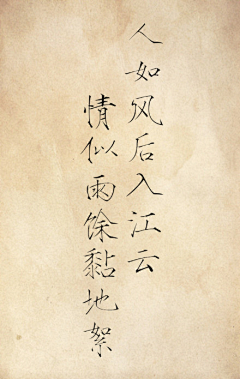 人如风后入江云
情似雨馀黏地絮